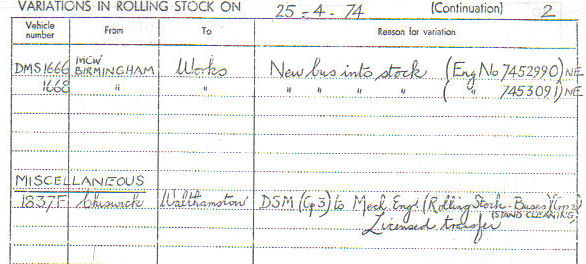 VARIATIONS IN ROLLING STOCK ON 25-4-74 (Continuation) 2
Vehicle number From To Reason for variation
DMS1666 MCW BIRMINGHAM Works New bus into stock (Eng No 7452990) NE
1668 " " " " " " ( " 7453091) NE
MISCELLANEOUS
1837F Chiswick Walthamstow DSM (Gp3) to Mech Engr (Rolling Stock - Buses) (Gp2)
(STAND CLEANING)
Licensed transfer